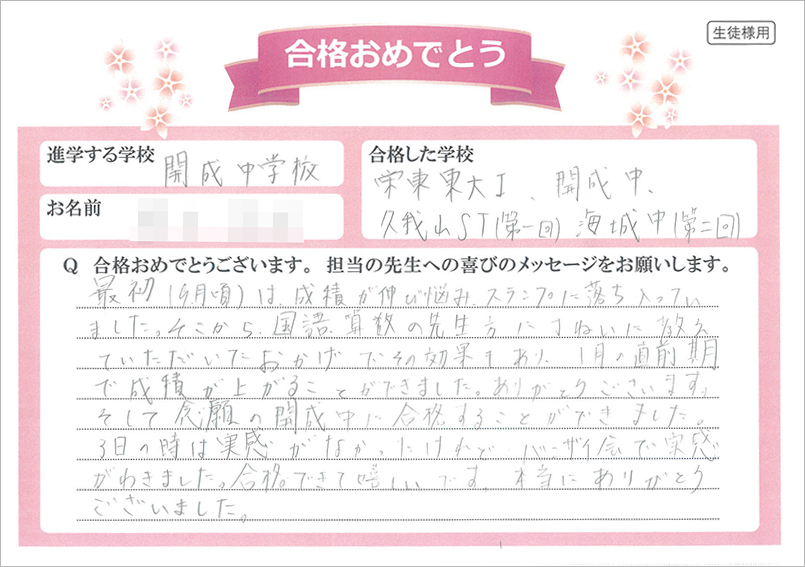 生徒様用
合格おめでとう
進学する学校 開成中学校
合格した学校
栄東東大I、開成中、
久我山ST(第一回) 海城中(第二回)
お名前
Q 合格おめでとうございます。担当の先生への喜びのメッセージをお願いします。
最初(9月頃)は、成績が伸び悩みスランプに落ち入ってい
ました。そこから、国語、算数の先生方にていねいに教え
ていただいたおかげでその効果もあり、1月の直前期
で成績が上がることができました。ありがとうございます。
そして念願の開成中に合格することができました。
3日の時は実感がなかったけれどバーザイ会で実感
がわきました。合格できて嬉しいです。本当にありがとう
ございました。